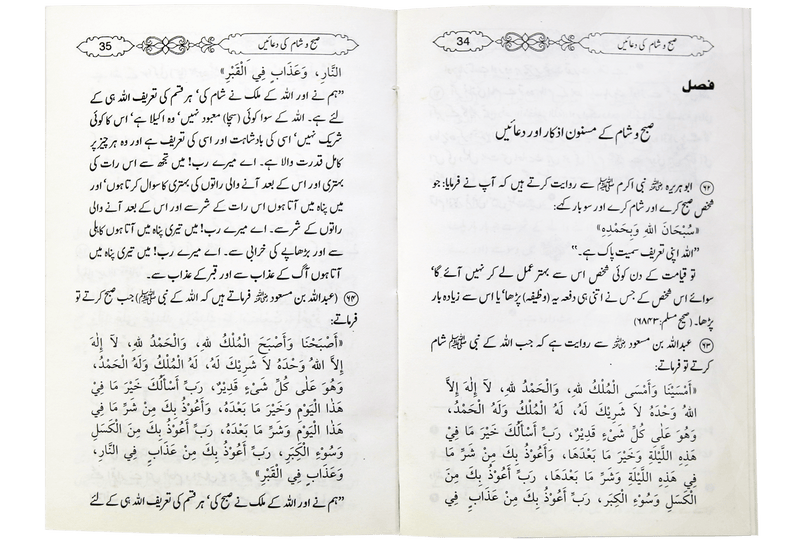 صبح و شام کی دعائیں 34
فصل
صبح و شام کے مسنون اذکار اور دعائیں
۶۲ ابو ہریرہ رضی اللہ عنہ نبی اکرم ﷺ سے روایت کرتے ہیں کہ آپ نے فرمایا: جو
شخص صبح کرے اور شام کرے اور سو بار کہے:
«سُبْحَانَ اللهِ وَبِحَمْدِهِ»
”اللہ اپنی تعریف سمیت پاک ہے۔“
تو قیامت کے دن کوئی شخص اس سے بہتر عمل لے کر نہیں آئے گا‘
سوائے اس شخص کے جس نے اتنی ہی دفعہ یہ (وظیفہ) پڑھا‘ یا اس سے زیادہ بار
پڑھا۔ (صحیح مسلم:۶۸۴۳)
۶۳ عبداللہ بن مسعود رضی اللہ عنہ سے روایت ہے کہ جب اللہ کے نبی ﷺ شام
کرتے تو فرماتے:
«أَمْسَيْنَا وَأَمْسَى الْمُلْكُ للهِ، وَالْحَمْدُ للهِ، لاَ إِلَهَ إِلاَّ
اللهُ وَحْدَهُ لاَ شَرِيْكَ لَهُ، لَهُ الْمُلْكُ وَلَهُ الْحَمْدُ،
وَهُوَ عَلَى كُلِّ شَىْءٍ قَدِيْرٌ، رَبِّ أَسْأَلُكَ خَيْرَ مَا فِيْ
هَذِهِ اللَّيْلَةِ وَخَيْرَ مَا بَعْدَهَا، وَأَعُوْذُ بِكَ مِنْ شَرِّ مَا
فِي هَذِهِ اللَّيْلَةِ وَشَرِّ مَا بَعْدَهَا، رَبِّ أَعُوْذُ بِكَ مِنَ
الْكَسَلِ وَسُوْءِ الْكِبَرِ، رَبِّ أَعُوْذُ بِكَ مِنْ عَذَابٍ فِي
صبح و شام کی دعائیں 35
النَّارِ، وَعَذَابٍ فِي الْقَبْرِ»
”ہم نے اور اللہ کے ملک نے شام کی‘ ہر قسم کی تعریف اللہ ہی کے
لئے ہے۔ اللہ کے سوا کوئی (سچا) معبود نہیں‘ وہ اکیلا ہے‘ اس کا کوئی
شریک نہیں‘ اسی کی بادشاہت اور اسی کی تعریف ہے اور وہ ہر چیز پر
کامل قدرت والا ہے۔ اے میرے رب! میں تجھ سے اس رات کی
بہتری اور اس کے بعد آنے والی راتوں کی بہتری کا سوال کرتا ہوں‘ اور
میں پناہ میں آتا ہوں اس رات کے شر سے اور اس کے بعد آنے والی
راتوں کے شر سے۔ اے میرے رب! میں تیری پناہ میں آتا ہوں کاہلی
سے اور بڑھاپے کی خرابی سے۔ اے میرے رب! میں تیری پناہ میں
آتا ہوں آگ کے عذاب سے اور قبر کے عذاب سے۔
۶۴ (عبداللہ بن مسعود رضی اللہ عنہ فرماتے ہیں کہ اللہ کے نبی ﷺ) جب صبح کرتے تو
فرماتے:
«أَصْبَحْنَا وَأَصْبَحَ الْمُلْكُ للهِ، وَالْحَمْدُ للهِ، لاَ إِلَهَ
إِلاَّ اللهُ وَحْدَهُ لاَ شَرِيْكَ لَهُ، لَهُ الْمُلْكُ وَلَهُ الْحَمْدُ،
وَهُوَ عَلَى كُلِّ شَىْءٍ قَدِيْرٌ، رَبِّ أَسْأَلُكَ خَيْرَ مَا فِيْ
هَذَا الْيَوْمِ وَخَيْرَ مَا بَعْدَهُ، وَأَعُوْذُ بِكَ مِنْ شَرِّ مَا فِيْ
هَذَا الْيَوْمِ وَشَرِّ مَا بَعْدَهُ، رَبِّ أَعُوْذُ بِكَ مِنَ الْكَسَلِ
وَسُوْءِ الْكِبَرِ، رَبِّ أَعُوْذُ بِكَ مِنْ عَذَابٍ فِي النَّارِ،
وَعَذَابٍ فِي الْقَبْرِ»
”ہم نے اور اللہ کے ملک نے صبح کی‘ ہر قسم کی تعریف اللہ ہی کے لئے